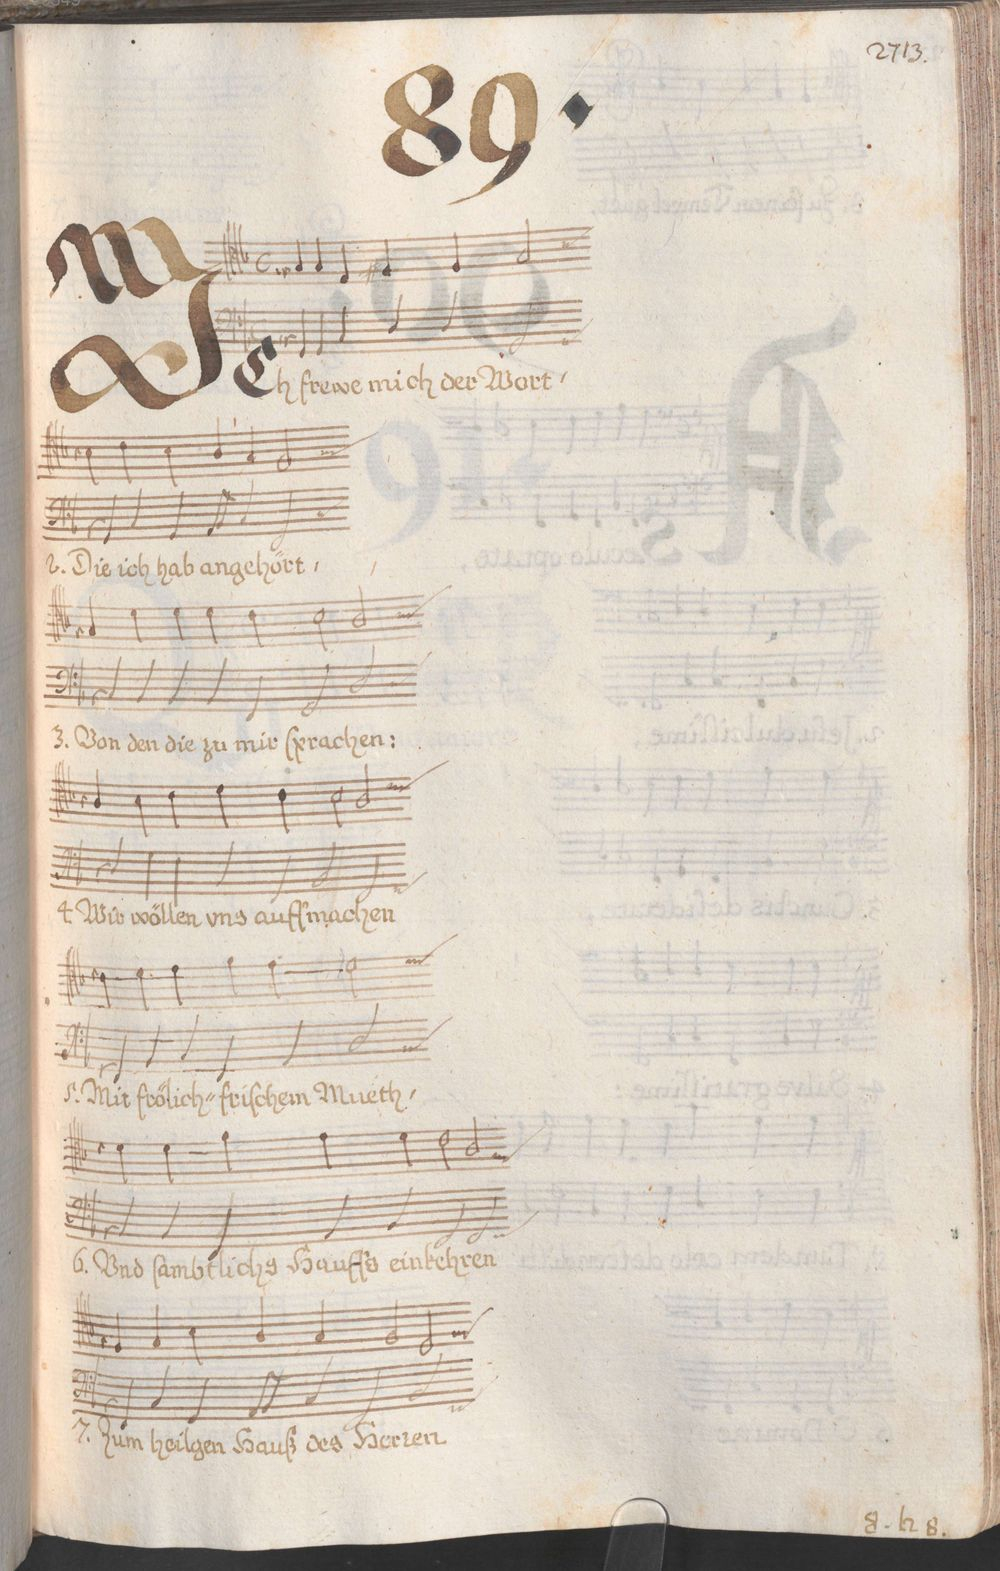 2713.
89.
Ich frewe mich der Wort,
2. Die ich hab angehört,
3. Von den die zu mir sprachen:
4 Wir wöllen vns auffmachen
5. Mit frölich-frischem Mueth,
6. Vnd sambtlichs Hauffs einkehren
7. Zum heilgen Hauß des Herren